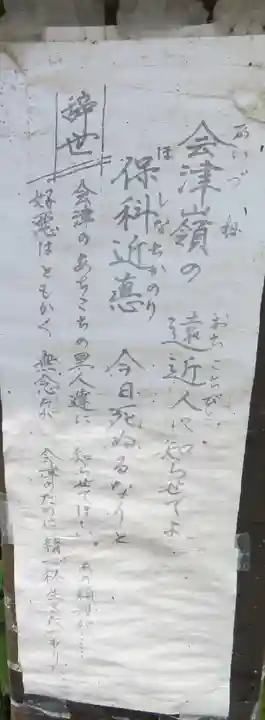 会津嶺の 遠近人に知らせてよ
あいづね おちこちびと
保科近悳 今日死ぬるなりと
ほしなちかのり
辞世
会津のあちこちの里人達に 知らせてほしい。
好悪はともかく 無念だ
会津のために